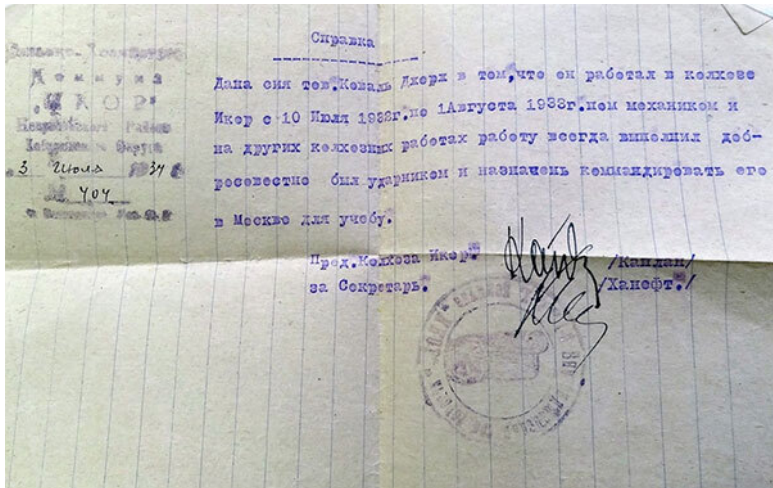 Справка
Коммуна
"ИКОР"
3 июля 1934
№ 404
Дана сия тов.Коваль Джорж в том,что он работал в колхозе
Икор с 10 Июля 1932г.по 1Августа 1933г.пом механиком и
на других колхозных работах работу всегда выполнил доб-
росовестно был ударником и назначень коммандировать его
в Москве для учебу.
Пред.Колхоза Икор. /Каплан/
за Секретарь. /Ханефт./